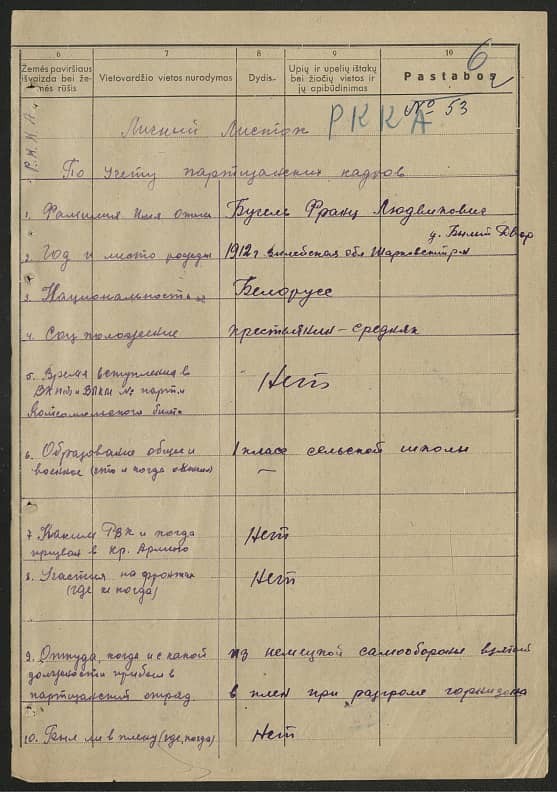 6 7 8 9 10
Žemės paviršiaus išvaizda bei žemės rūšis
Vietovardžio vietos nurodymas
Dydis
Upių ir upelių ištakų bei žiočių vietos ir jų apibūdinimas
Pastabos
6
№ 53
РККА
Р.К.К.А.
Личный Листок
По учету партизанских кадров
1. Фамилия Имя Отч. Бугель Франц Людвикович
2. Год и место рожд. 1912 г. Вилебская обл. Шарковск. р-н
3. Национальность Белорусс
4. Соц положение крестьянин - средняк
5. Время вступления в
и № парт. Нет
Комсомольского билета
6. Образование общее и 1 класс сельской школы
военное (что и когда окончил) —
7 Каким РВК и когда Нет
призван в Кр. Армию
8. Участия на фронтах Нет
(где и когда)
9. Откуда, когда и с какой из немецкой самообороны взятый
должности прибыл в
партизанский отряд в плен при разгроме гарнизона
10. Был ли в плену (где, когда) Нет